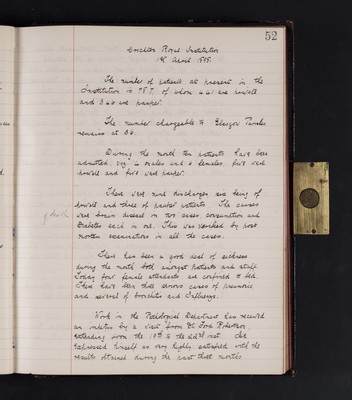 52
Crichton Royal Institution
1st April 1898.
The number of patients at present in the
Institution is 787, of whom 441 are private
and 346 are pauper.
The number chargeable to Glasgow Parishes
remains at 86.
During the month ten patients have been
admitted, viz. 6 males and 4 females, five were
private and five were pauper.
There were nine discharges six being of
private and three of pauper patients. The causes
of death
were brain disease in two cases consumption and
diabetes each in one. This was verified by post
mortem examination in all the cases.
There has been a good deal of sickness
during the month both amongst patients and staff.
Today four female attendants are confined to bed.
There have been three serious cases of pneumonia
and several of bronchitis and influenza.
Work in the Pathological Department has received
an impetus by a visit from Dr Ford Robertson
extending from the 18th to the 22nd inst. He
expressed himself as very highly satisfied with the
results obtained during the past twelve months